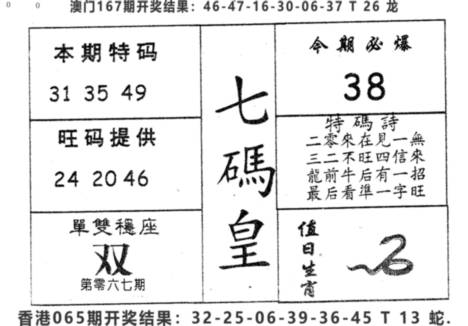 澳门167期开奖结果：46-47-16-30-06-37 T 26 龙
本期特码
31 35 49
旺码提供
24 20 46
單雙穩座
双
第零六七期
七碼皇
今期必爆
38
特碼詩
二零來在見一無
三二不旺四信來
龍前牛后有一招
最后看準一字旺
值日生肖
香港065期开奖结果：32-25-06-39-36-45 T 13 蛇.